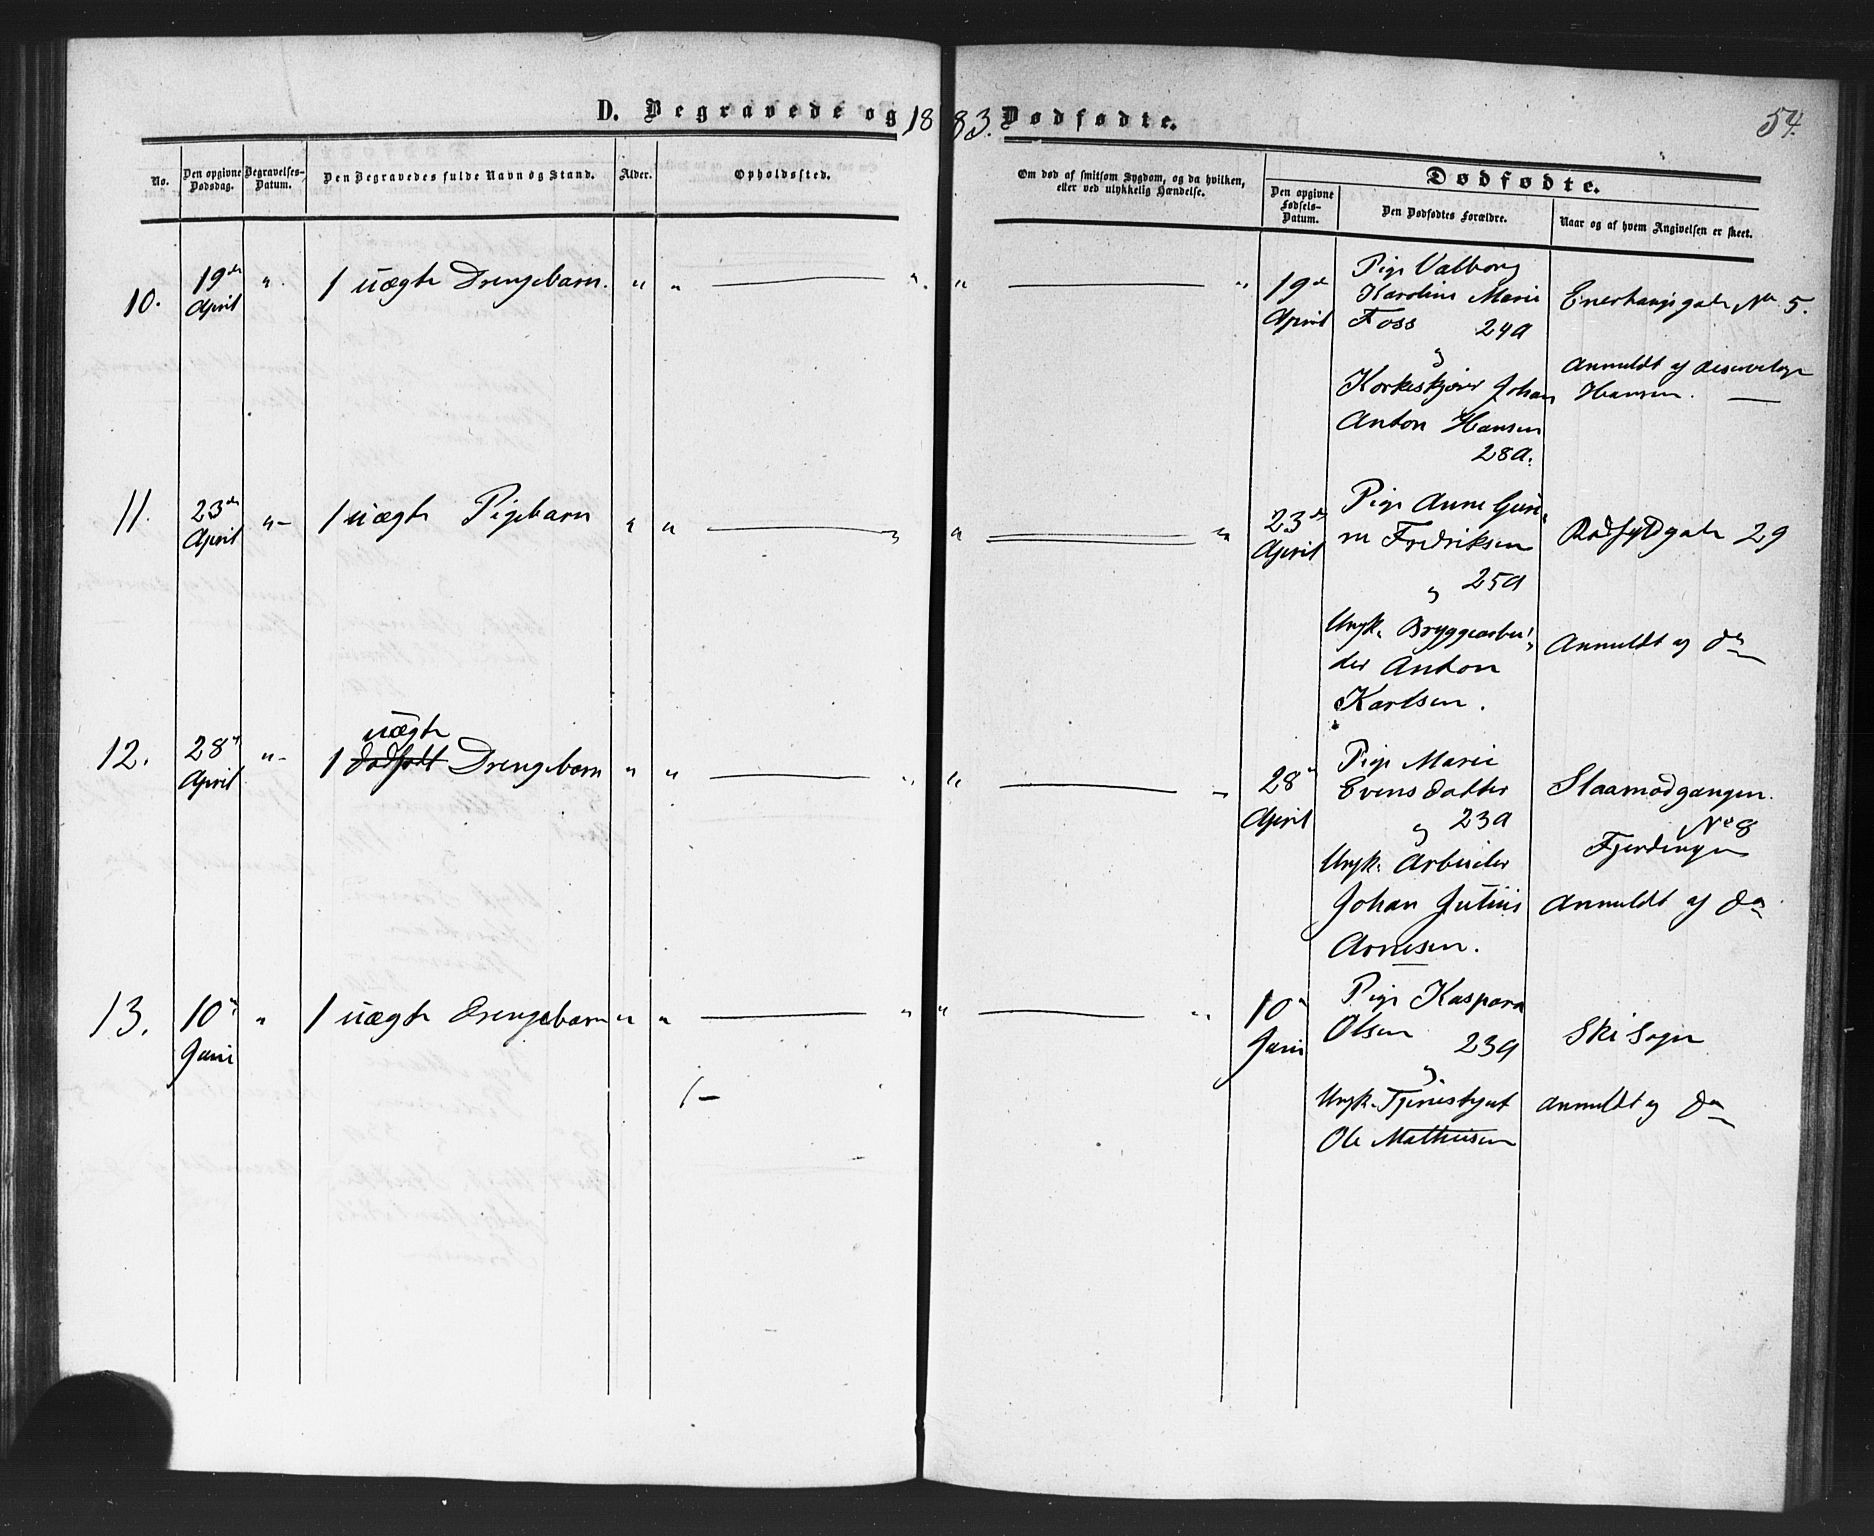 D. Begravede og 1883. Dødfødte. 54.
No. Den opgivne Dødsdag. Begravelses-Datum. Den Begravedes fulde Navn og Stand. Alder. Opholdssted.
Om død af smitsom Sygdom, og da hvilken,
eller ved ulykkelig Hændelse.
Dødfødte.
Den opgivne Fødsels-Datum. Den Dødfødtes Forældre. Naar og af hvem Angivelsen er skeet.
10. 19de April " 1 uægte Drengebarn. " " " " " 19de April
Pige Valborg
Karoline Marie
Foss 24a
og
Korkeskjærer Johan
Anton Hansen
28a.
Enerhaugsgade No 5.
Anmeldt af
Hansen.
11. 23de April " 1 uægte Pigebarn " " " " " 23de April
Pige Anne Gun-
ru Fredriksen
og 25a
Ungk. Bryggearbei-
der Anton
Karlsen.
Rødfyldgade 29
Anmeldt af do
12. 28de April " uægte
1 dødfødt Drengebarn " " " " " 28de April
Pige Marie
Evensdatter
og 23a
Ungk. Arbeider
Johan Julius
Arnesen.
Slaamodgangen
No 8
Fjerdingen
Anmeldt af do
13. 10de Juni " 1 uægte Drengebarn " " " " " 10de Juni
Pige Kaspara
Olsen 23a
og
Ungk. Tjenestgut
Ole Mathisen
Ski Sogn
anmeldt af do